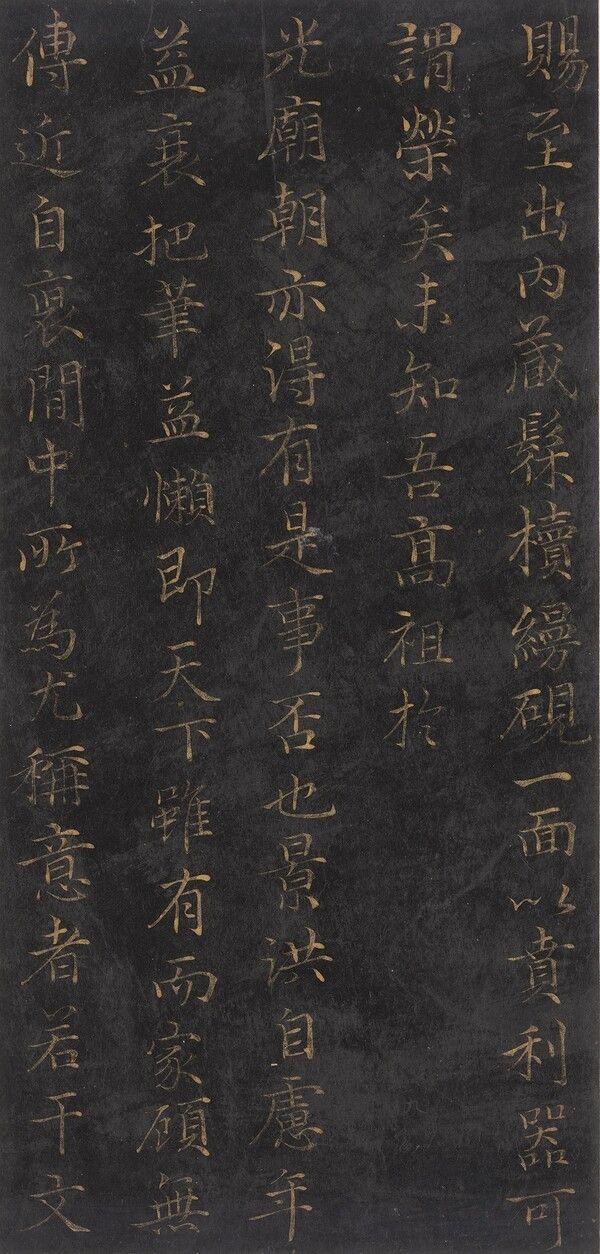 賜至出内蔵髹櫝纓硯一面以賁利器可
謂榮矣未知吾髙祖於
光廟朝亦得有是事否也景洪自慮年
益衰把筆益懶即天下雖有而家顧無
傳近自裒間中所為尤稱意者若干文